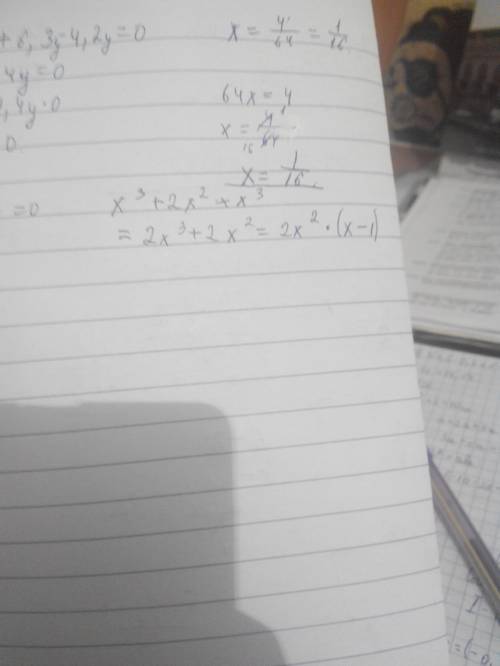 + 6,3y-4,2y=0
4y=0
,4y=0
0
=0
x = 4/64 = 1/16
64x = 4
x = 4/64
1
16
x = 1/16
x³+2x²+x³
= 2x³+2x² = 2x²·(x-1)